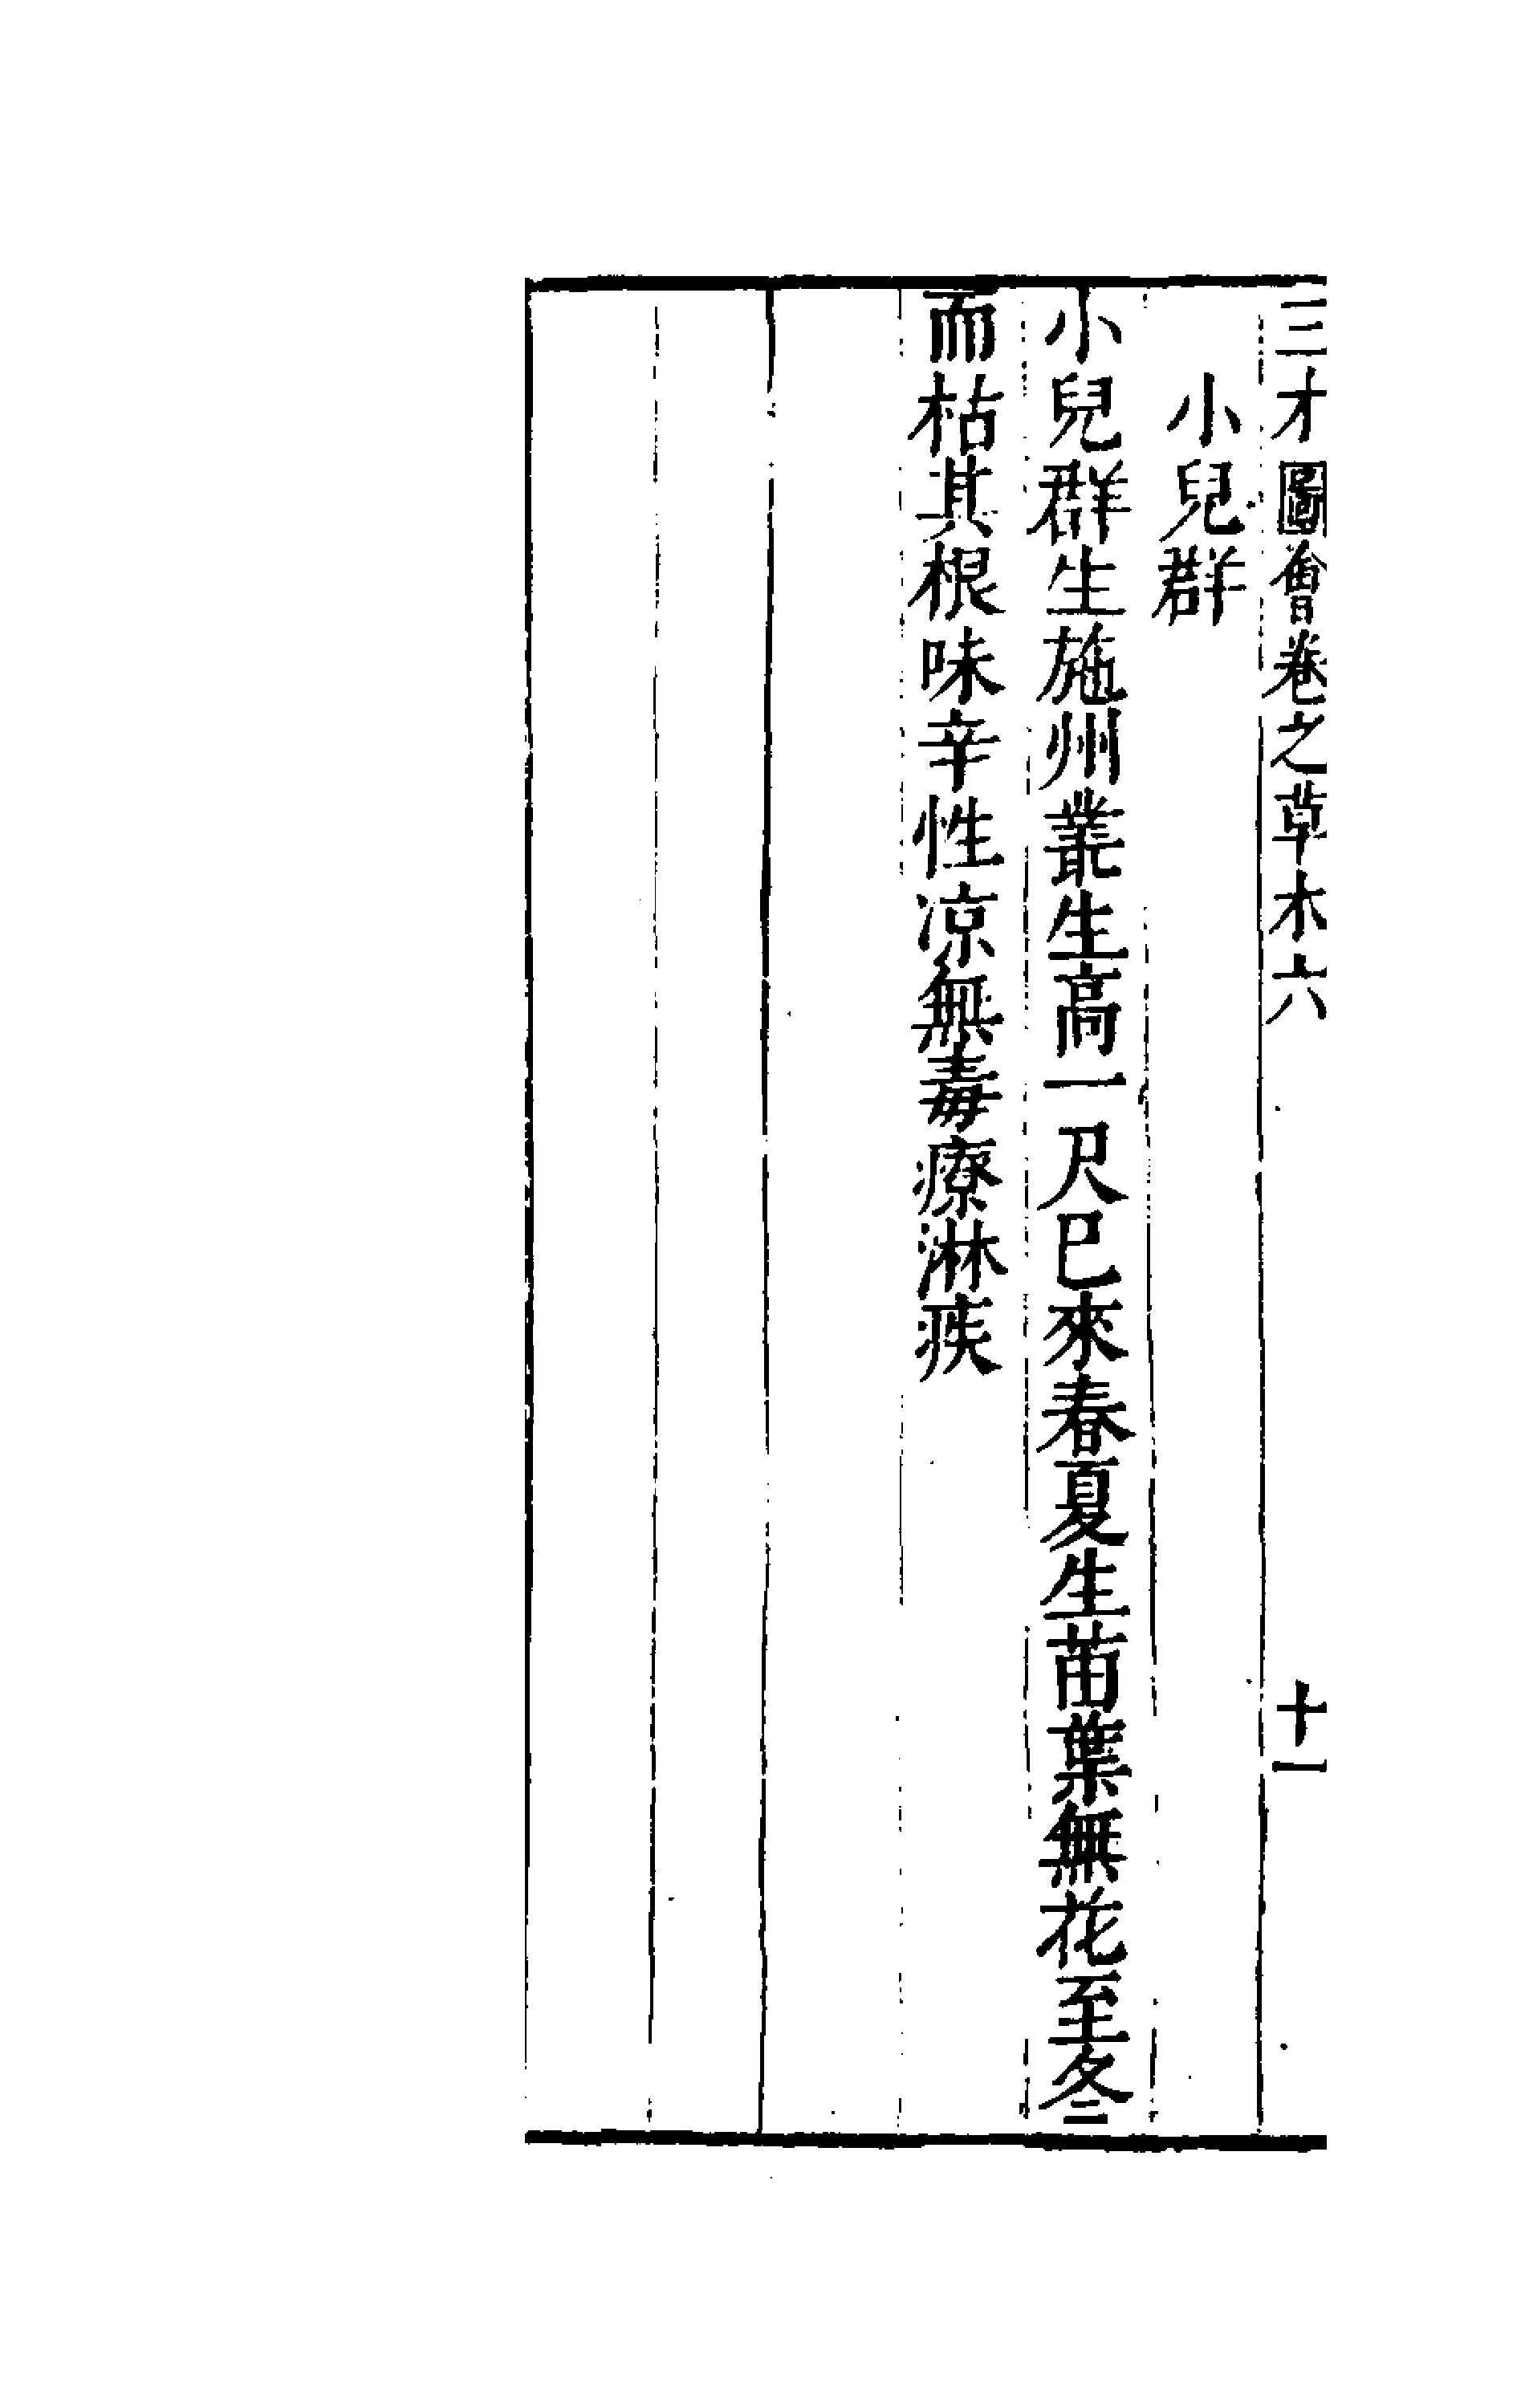 三才圖會卷之草木六 十一
小兒群
小兒群生施州叢生高一尺巳來春夏生苗葉無花至冬
而枯其根味辛性凉無毒療淋疾